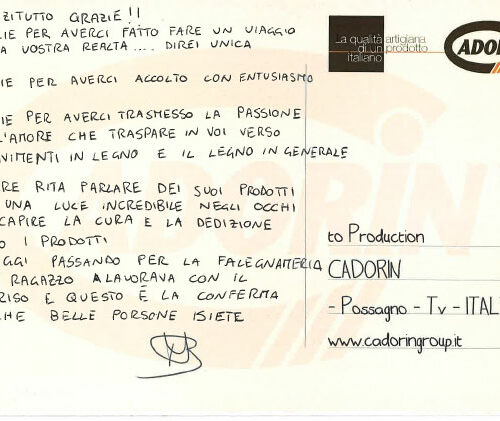 ZITUTTO GRAZIE!!
IE PER AVERCI FATTO FARE UN VIAGGIO
A VOSTRA REALTA.... DIREI UNICA
IE PER AVERCI ACCOLTO CON ENTUSIASMO
IE PER AVERCI TRASMESSO LA PASSIONE
L'AMORE CHE TRASPARE IN VOI VERSO
VIMENTI IN LEGNO E IL LEGNO IN GENERALE
RE RITA PARLARE DEI SUOI PRODOTTI
UNA LUCE INCREDIBILE NEGLI OCCHI
CAPIRE LA CURA E LA DEDIZIONE
O I PRODOTTI
GGI PASSANDO PER LA FALEGNAMERIA
RAGAZZO LAVORAVA CON IL
RISO E QUESTO È LA CONFERMA
CHE BELLE PORSONE ISIETE
La qualità artigiana
di un prodotto
italiano
CADORIN
ADORIN
to Production
CADORIN
- Possagno - Tv - ITAL
www.cadoringroup.it